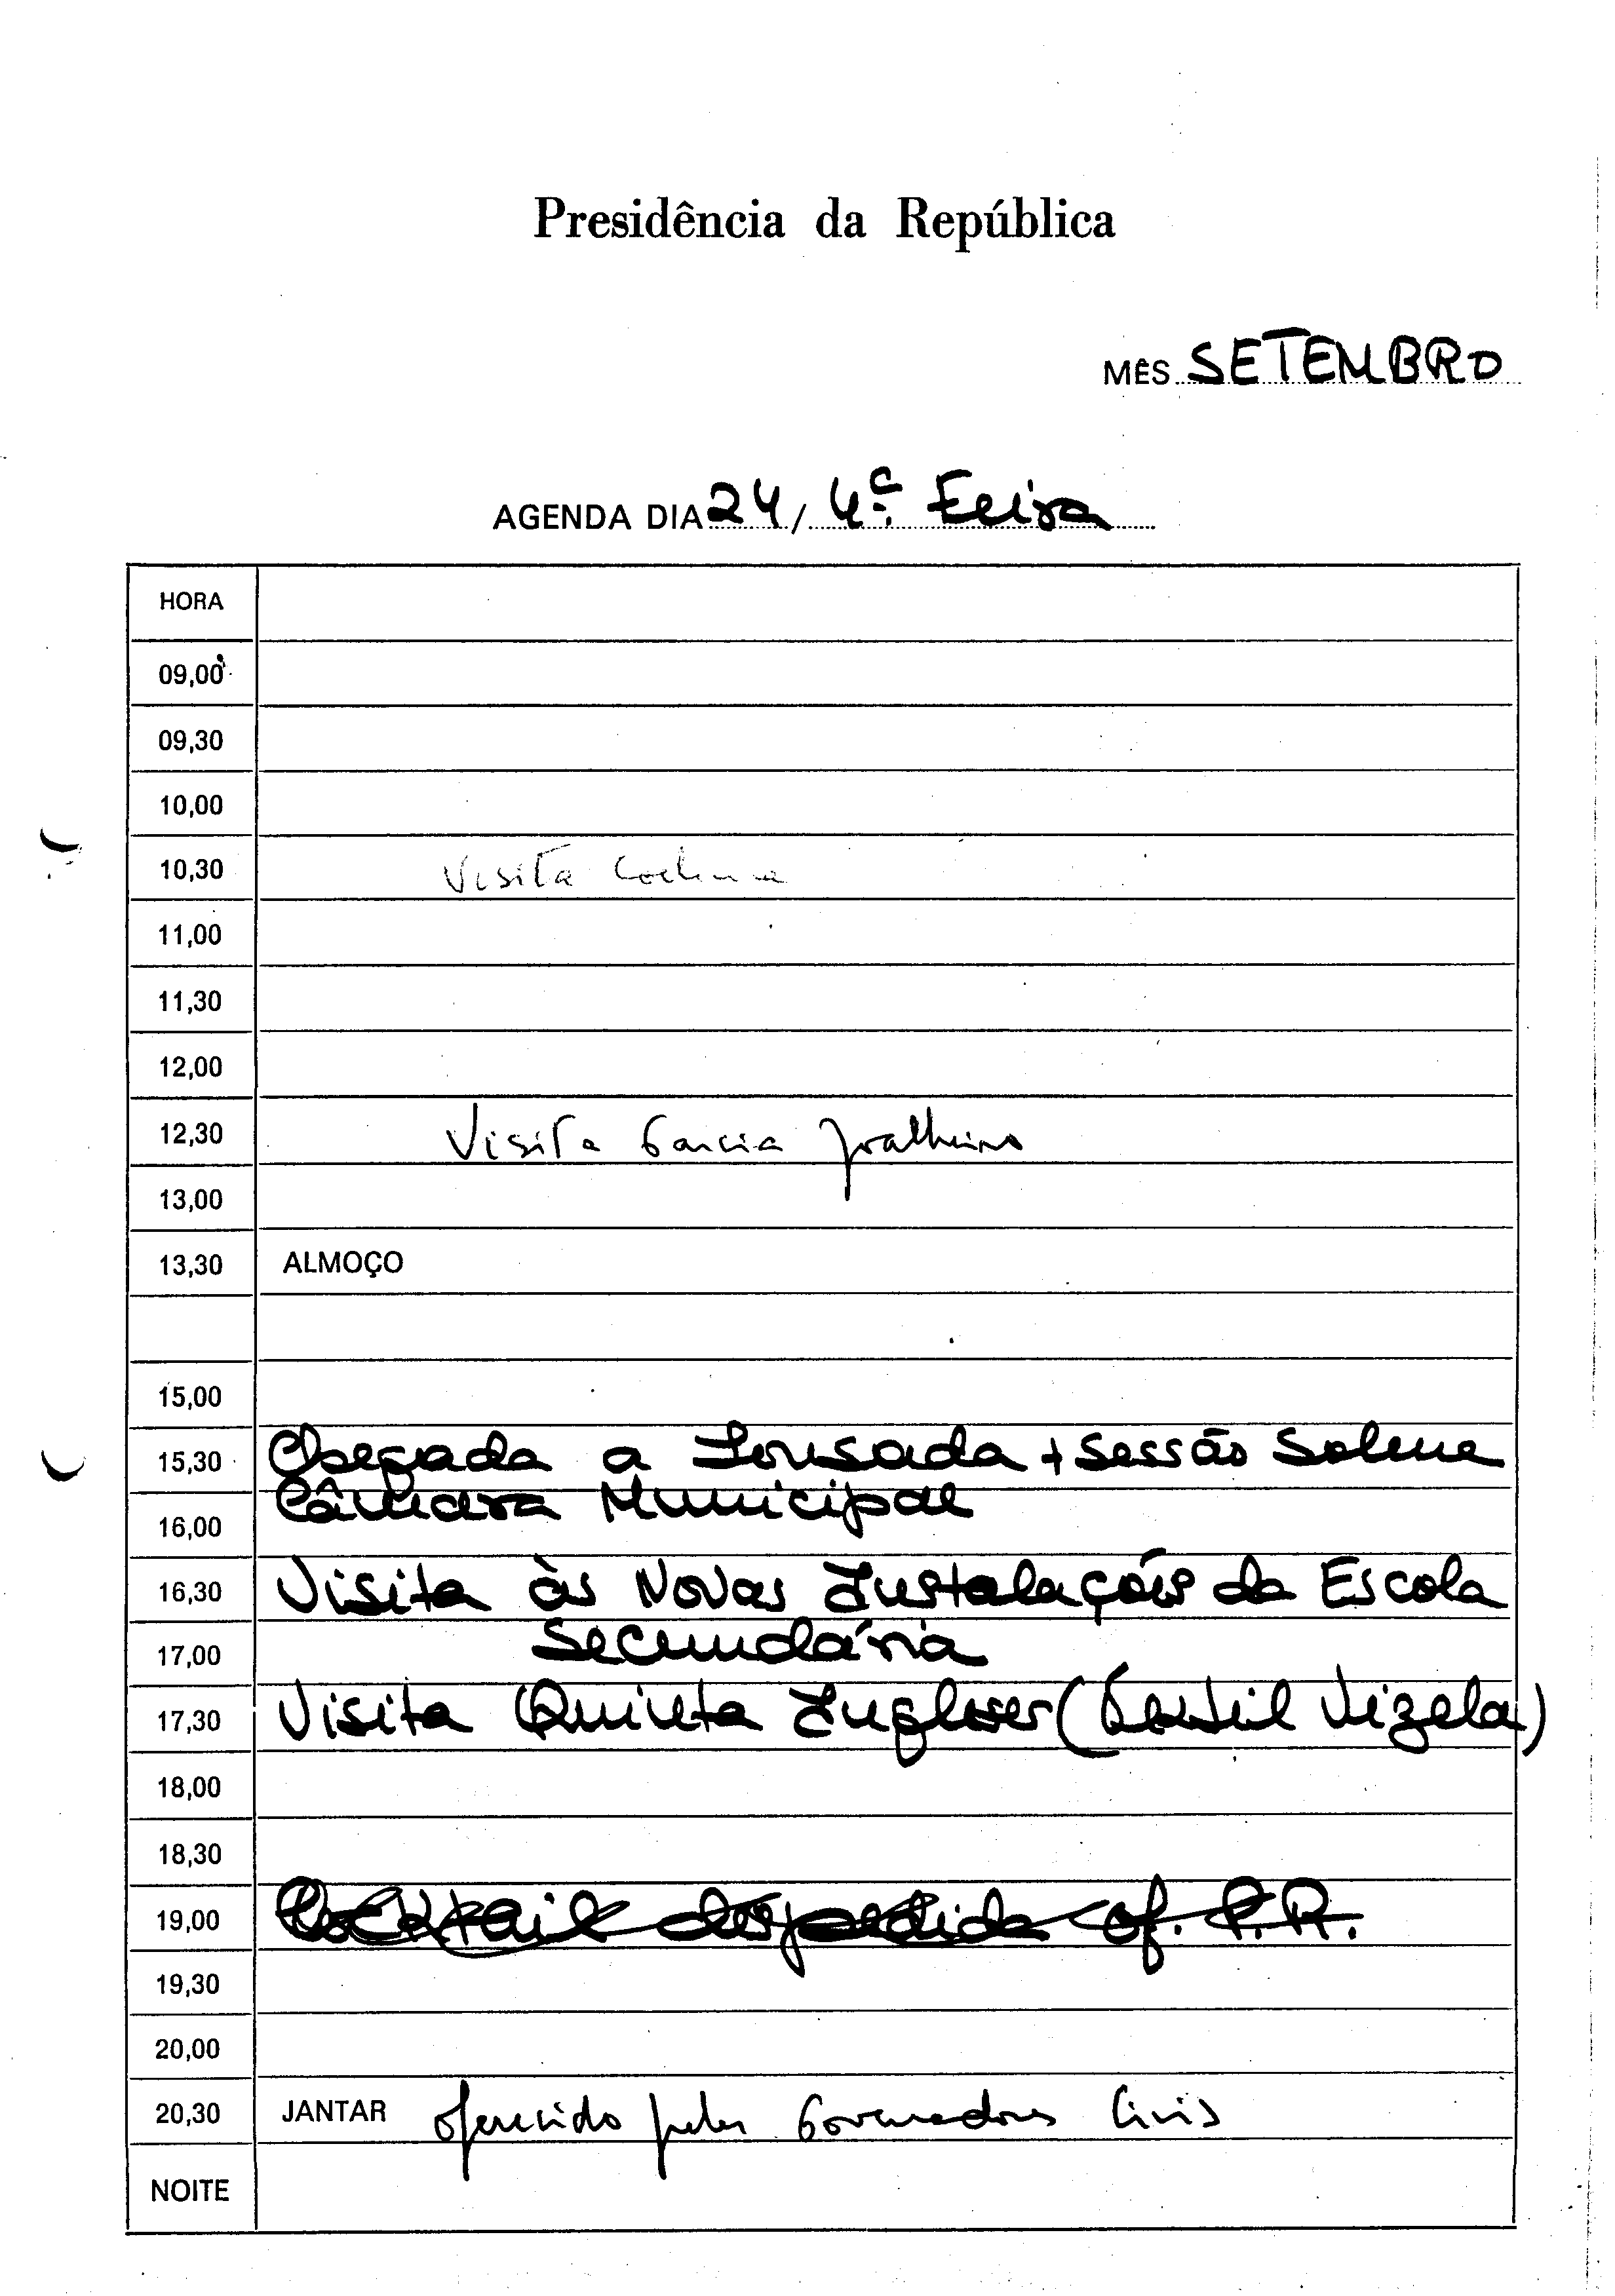 Presidência da República
MÊS SETEMBRO
AGENDA DIA 24 / 4ª Feira
HORA
09,00
09,30
10,00
10,30 Visita
11,00
11,30
12,00
12,30 Visita Garcia Joalheiro
13,00
13,30 ALMOÇO
15,00
15,30 Chegada a Lousada + Sessão Solene
Câmara Municipal
16,00
16,30 Visita às Novas Instalações da Escola
17,00 Secundária
17,30 Visita Quinta Ingleses (Têxtil Vizela)
18,00
18,30
19,00 Cocktail despedida of. P.R.
19,30
20,00
20,30 JANTAR oferecido pelos Governadores Civis
NOITE